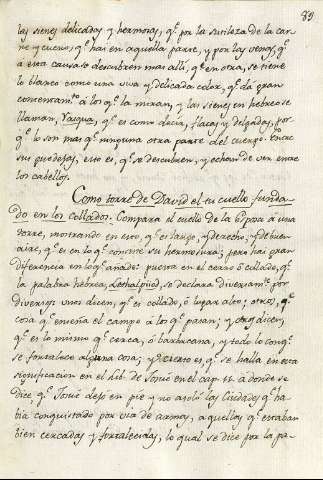 89
las sienes delicadas y hermosas, q.e por la sutileza de la car
ne y cuero, q.e hai en aquella parte, y por las venas, q.e
a esta causa se descubren mas alli, q.e en otra, se tiñe
lo blanco como una viva y delicada color, q.e da gran
contentam.to à los q.e la miran, y las sienes en hebreo se
llaman, q.e es como decir, flacas y delgadas, por
q.e lo son mas q.e ninguna otra parte del cuerpo. Entre
sus guedejas, esto es, q.e se descubren, y echan de ver entre
los cabellos.
Como torre de David el tu cuello funda
do en los collados. Compara el cuello de la Esposa à una
torre, mostrando en esto, q.e es largo, y derecho, y de buen
aire, q.e es en lo q.e consiste su hermosura; pero hai gran
diferencia en lo q.e añade: puesta en el cerro ò collado, q.e
la palabra hebrea, se declara diversam.te por
diversos: unos dicen, q.e es collado, ò lugar alto; otros, q.e
cosa q.e enseña el campo à los q.e pasan; y otros dicen,
q.e es lo mismo q.e cerca, ò barbacana, y todo lo con q.e
se fortalece alguna cosa; y esto es q.e se halla en esta
significacion en el Lib. de Josue en el cap. 11. a donde se
dice, q.e Josue dejo en pie y no asoló las Ciudades q.e ha
bia conquistado por via de armas, a quellos q.e estaban
bien cercadas y fortalecidas, lo qual se dice por la pa-